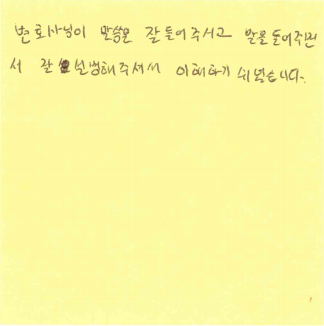 변호사님이 말씀을 잘 들어주시고 말을 들어주면
서 잘 설명해주셔서 이해하기 쉬웠습니다.